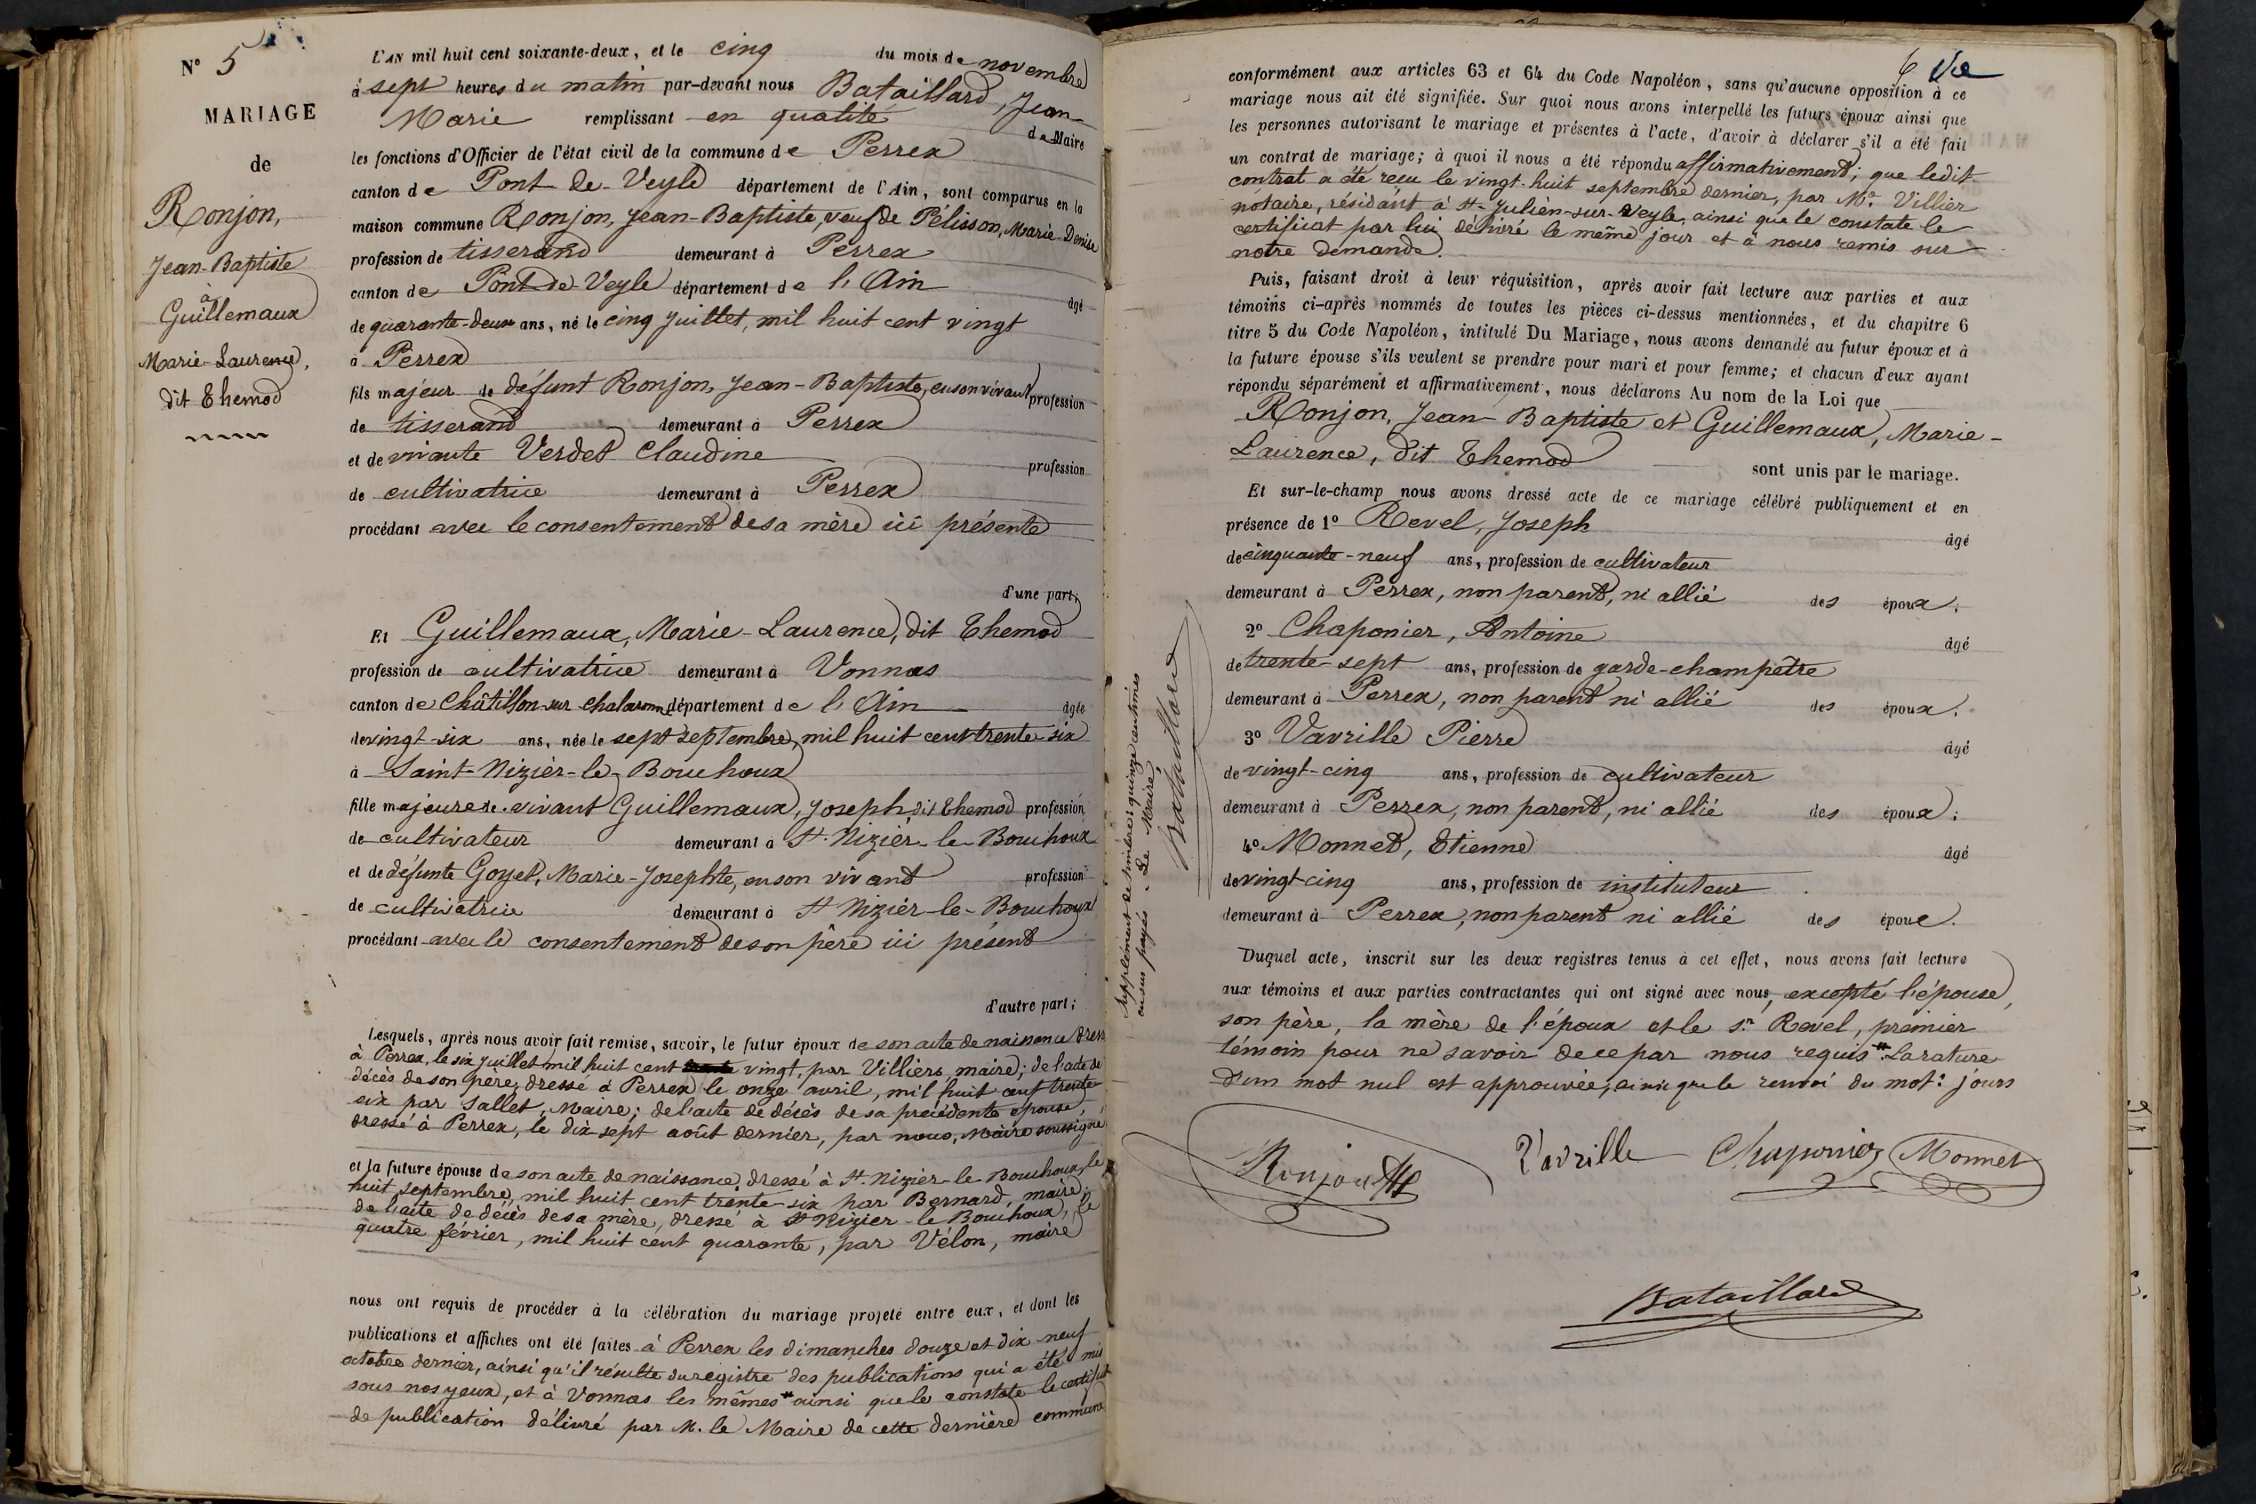 N° 5
MARIAGE
de
Ronjon,
Jean-Baptiste
à
Guillemaux
Marie-Laurence,
dit Themod
L'AN mil huit cent soixante-deux, et le cinq du mois de novembre
à sept heures du matin par-devant nous Bataillard, Jean-
Marie remplissant en qualité de Maire
les fonctions d'Officier de l'état civil de la commune de Perrex
canton de Pont-de-Veyle département de l'Ain, sont comparus en la
maison commune Ronjon, Jean-Baptiste, veuf de Pélisson, Marie-Denise
profession de tisserand demeurant à Perrex
canton de Pont-de-Veyle département de l'Ain âgé
de quarante-deux ans, né le cinq Juillet, mil huit cent vingt
à Perrex
fils majeur de défunt Ronjon, Jean-Baptiste, en son vivant profession
de tisserand demeurant à Perrex
et de vivante Verdet Claudine profession
de cultivatrice demeurant à Perrex
procédant avec le consentement de sa mère ici présente
d'une part;
Et Guillemaux, Marie-Laurence, dit Themod
profession de cultivatrice demeurant à Vonnas
canton de Châtillon-sur-Chalaronne département de l'Ain âgée
de vingt-six ans, née le sept septembre, mil huit cent trente-six
à Saint-Nizier-le-Bouchoux
fille majeure de vivant Guillemaux, Joseph, dit Themod profession
de cultivateur demeurant à St. Nizier-le-Bouchoux
et de défunte Goyet, Marie-Josephte, en son vivant profession
de cultivatrice demeurant à St Nizier-le-Bouchoux
procédant avec le consentement de son père ici présent
d'autre part;
Lesquels, après nous avoir fait remise, savoir, le futur époux de son acte de naissance dressé
à Perrex, le six juillet mil huit cent vingt, par Villiers, maire; de l'acte de
décès de son père, dressé à Perrex le onze avril, mil huit cent trente
six par Sallet, Maire; de l'acte de décès de sa précédente épouse,
dressé à Perrex, le dix-sept août dernier, par nous, Maire soussigné
et la future épouse de son acte de naissance, dressé à St. Nizier-le-Bouchoux, le
huit septembre, mil huit cent trente-six par Bernard, maire;
de l'acte de décès de sa mère, dressé à St Nizier-le-Bouchoux, le
quatre février, mil huit cent quarante, par Vélon, maire
nous ont requis de procéder à la célébration du mariage projeté entre eux, et dont les
publications et affiches ont été faites à Perrex les dimanches douze et dix-neuf
octobre dernier, ainsi qu'il résulte du registre des publications qui a été mis
sous nos yeux, et à Vonnas les mêmes * ainsi que le constate le certificat
de publication délivré par M. le Maire de cette dernière commune
6
conformément aux articles 63 et 64 du Code Napoléon, sans qu'aucune opposition à ce
mariage nous ait été signifiée. Sur quoi nous avons interpellé les futurs époux ainsi que
les personnes autorisant le mariage et présentes à l'acte, d'avoir à déclarer s'il a été fait
un contrat de mariage; à quoi il nous a été répondu affirmativement; que ledit
contrat a été reçu le vingt-huit septembre dernier, par Me. Villier
notaire, résidant à St-Julien-sur-Veyle, ainsi que le constate le
certificat par lui délivré le même jour et à nous remis sur
notre demande.
Puis, faisant droit à leur réquisition, après avoir fait lecture aux parties et aux
témoins ci-après nommés de toutes les pièces ci-dessus mentionnées, et du chapitre 6
titre 5 du Code Napoléon, intitulé Du Mariage, nous avons demandé au futur époux et à
la future épouse s'ils veulent se prendre pour mari et pour femme; et chacun d'eux ayant
répondu séparément et affirmativement, nous déclarons Au nom de la Loi que
Ronjon, Jean-Baptiste et Guillemaux, Marie-
Laurence, dit Themod sont unis par le mariage.
Et sur-le-champ nous avons dressé acte de ce mariage célébré publiquement et en
présence de 1° Revel, Joseph âgé
de cinquante-neuf ans, profession de cultivateur
demeurant à Perrex, non parent, ni allié des époux;
2° Chaponier, Antoine âgé
de trente-sept ans, profession de garde-champêtre
demeurant à Perrex, non parent ni allié des époux;
3° Vavrille Pierre âgé
de vingt-cinq ans, profession de cultivateur
demeurant à Perrex, non parent, ni allié des époux;
4° Monnet, Etienne âgé
de vingt-cinq ans, profession de instituteur
demeurant à Perrex, non parent ni allié des époux.
Duquel acte, inscrit sur les deux registres tenus à cet effet, nous avons fait lecture
aux témoins et aux parties contractantes qui ont signé avec nous, excepté l'épouse,
son père, la mère de l'époux et le sr. Revel, premier
témoin pour ne savoir de ce par nous requis * La rature
d'un mot nul est approuvée, ainsi que le renvoi du mot: jours
Supplément de timbre: quinze centimes
en sus payés - Le Maire,
Bataillard
Ronjon Vavrille Chaponier Monnet
Bataillard